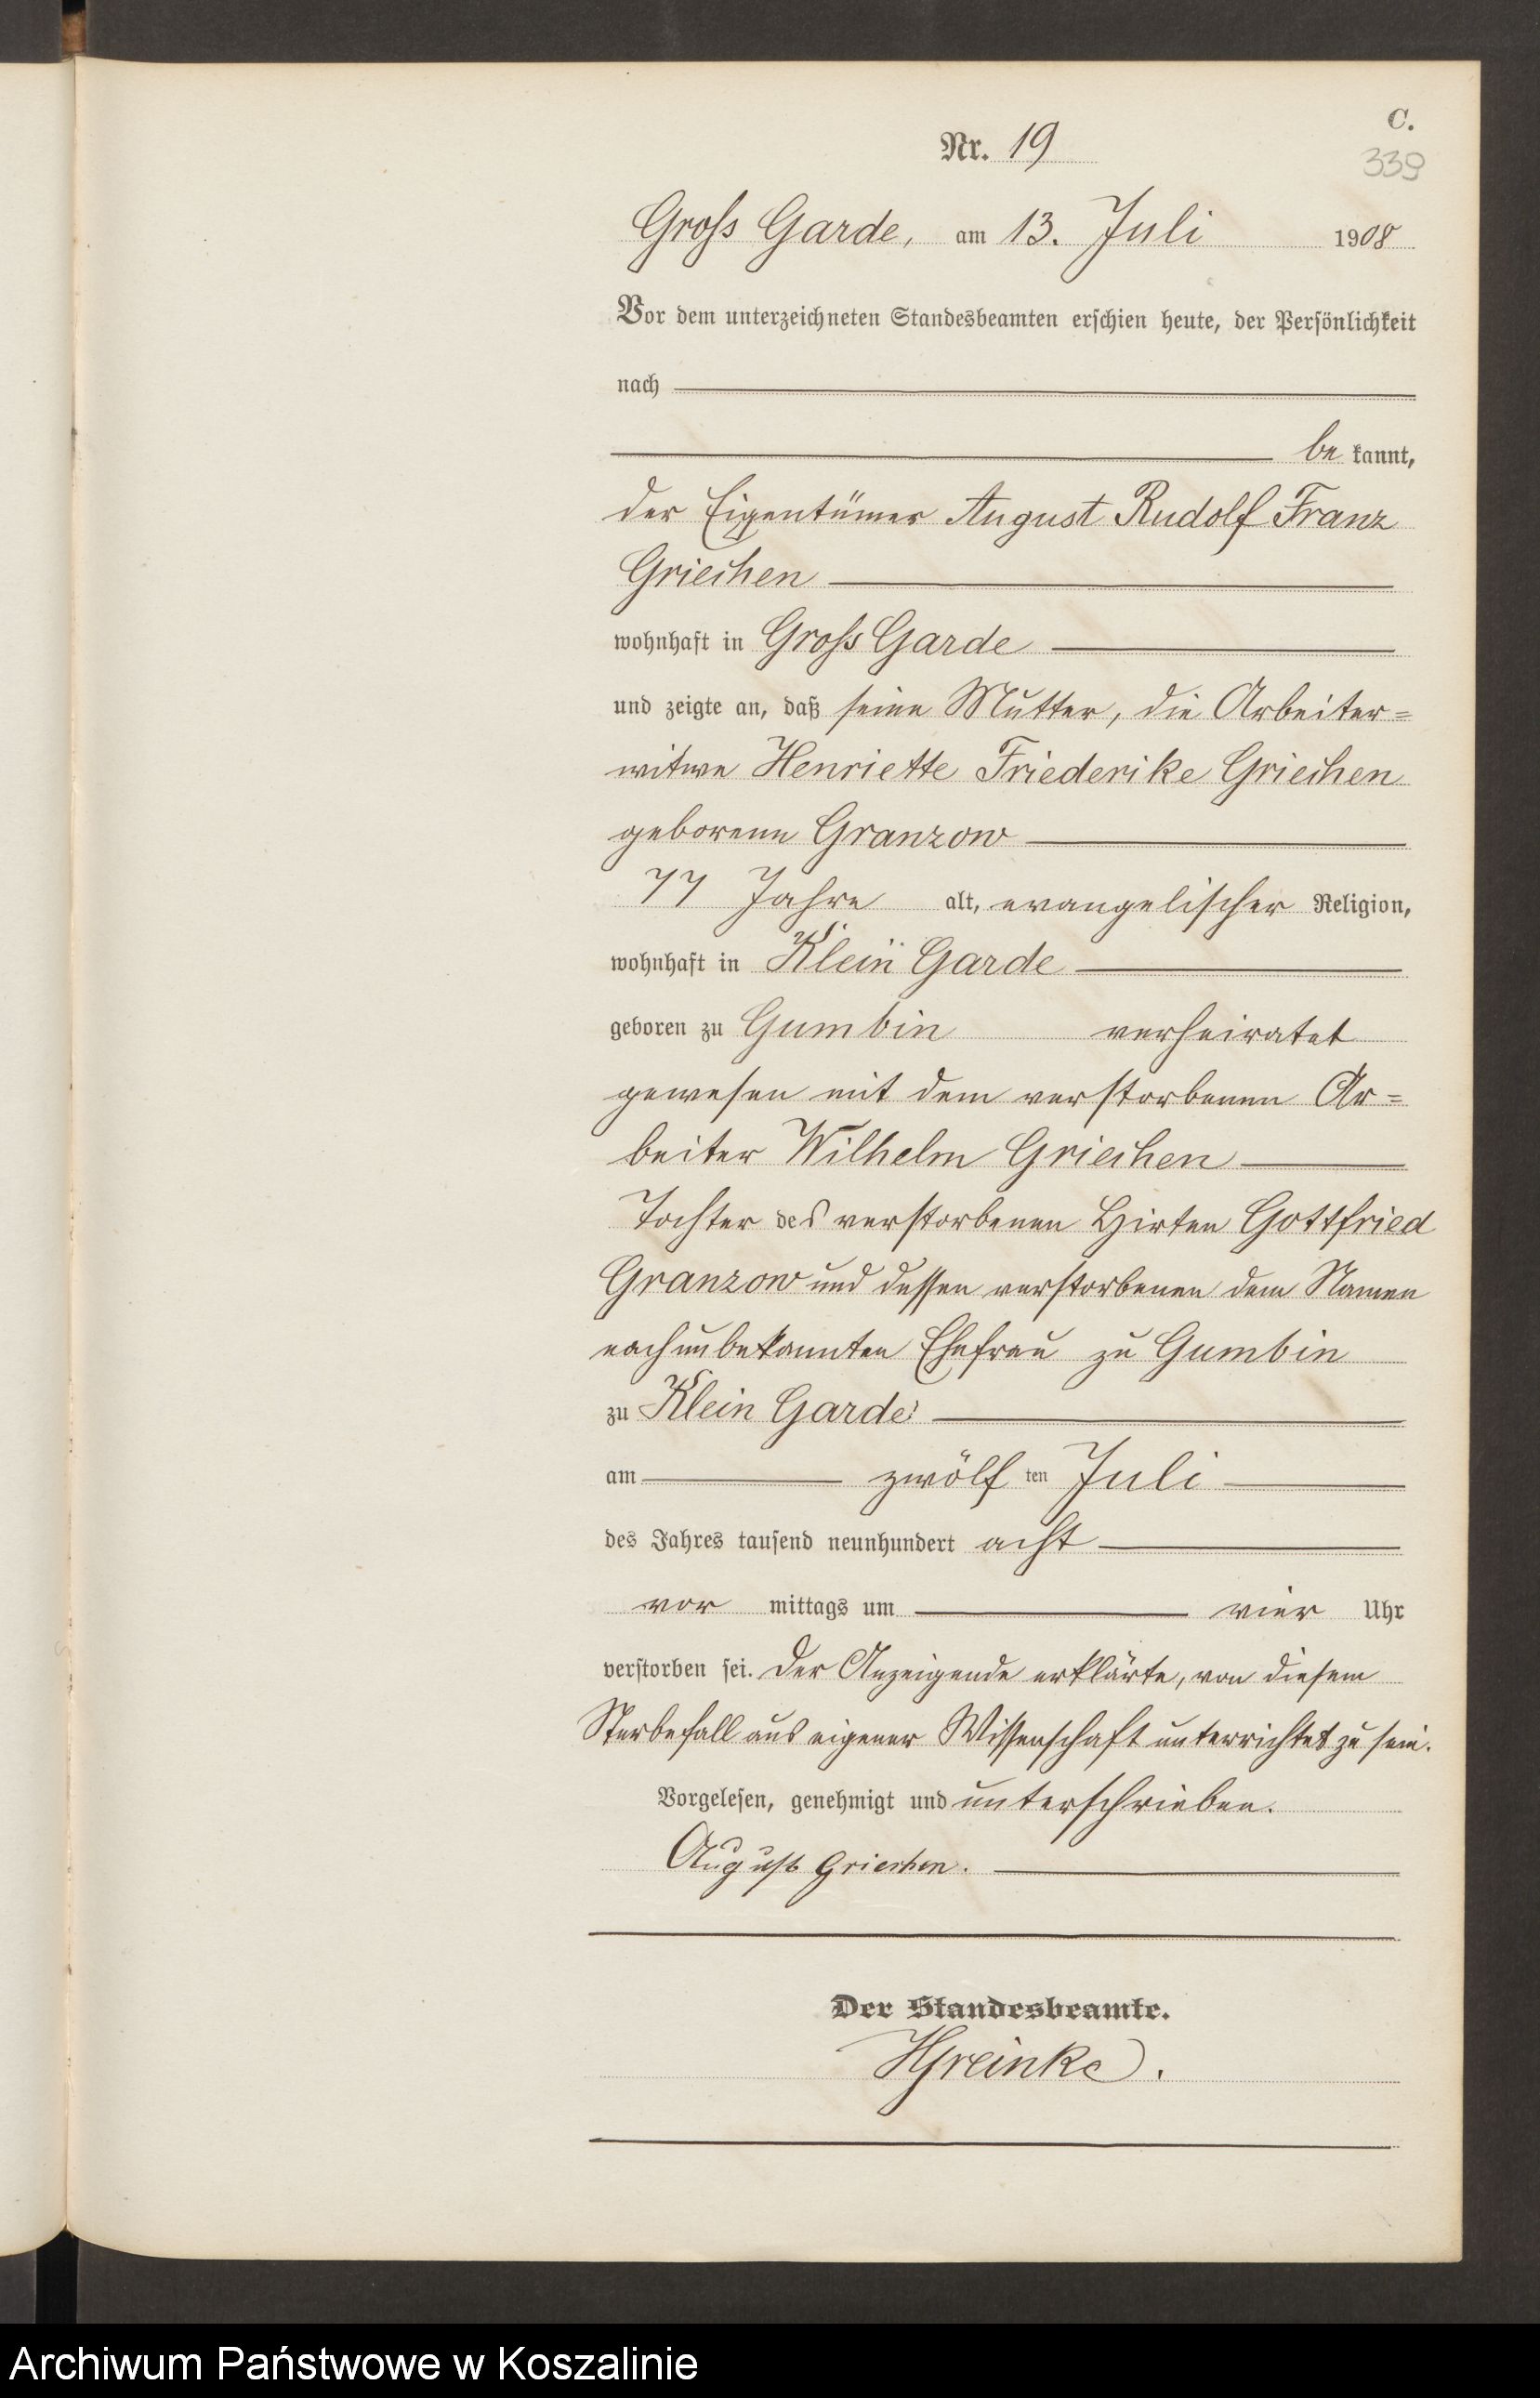 C.
Nr. 19
339
Gross Garde, am 13. Juli 1908
Vor dem unterzeichneten Standesbeamten erschien heute, der Persönlichkeit
nach
be kannt,
der Eigentümer August Rudolf Franz
Griechen
wohnhaft in Gross Garde
und zeigte an, daß seine Mutter, die Arbeiter=
witwe Henriette Friederike Griechen
geborene Granzow
77 Jahre alt, evangelischer Religion,
wohnhaft in Klein Garde
geboren zu Gumbin verheiratet
gewesen mit dem verstorbenen Ar=
beiter Wilhelm Griechen
Tochter des verstorbenen Hirten Gottfried
Granzow und dessen verstorbenen dem Namen
nach unbekannten Ehefrau zu Gumbin
zu Klein Garde
am zwölf ten Juli
des Jahres tausend neunhundert acht
vor mittags um vier Uhr
verstorben sei. Der Anzeigende erklärte, von diesem
Sterbefall aus eigener Wissenschaft unterrichtet zu sein.
Vorgelesen, genehmigt und unterschrieben.
August Griechen.
Der Standesbeamte.
Archiwum Państwowe w Koszalinie